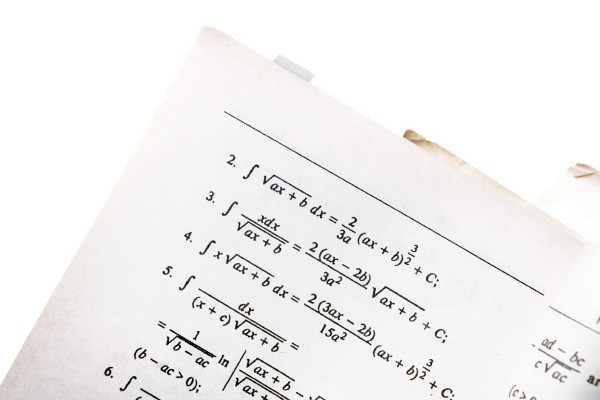 2. ∫ √(ax + b) dx = 2/3a (ax + b)^(3/2) + C;
3. ∫ xdx/√(ax + b) = 2(ax − 2b)/3a² √(ax + b) + C;
4. ∫ x√(ax + b) dx = 2(3ax − 2b)/15a² (ax + b)^(3/2) + C;
5. ∫ dx/((x + c)√(ax + b)) =
= 1/√(b − ac) ln |√(ax + b) − √
√(ax +
(b − ac > 0);
6. ∫
ad − bc
c√ac
(c>